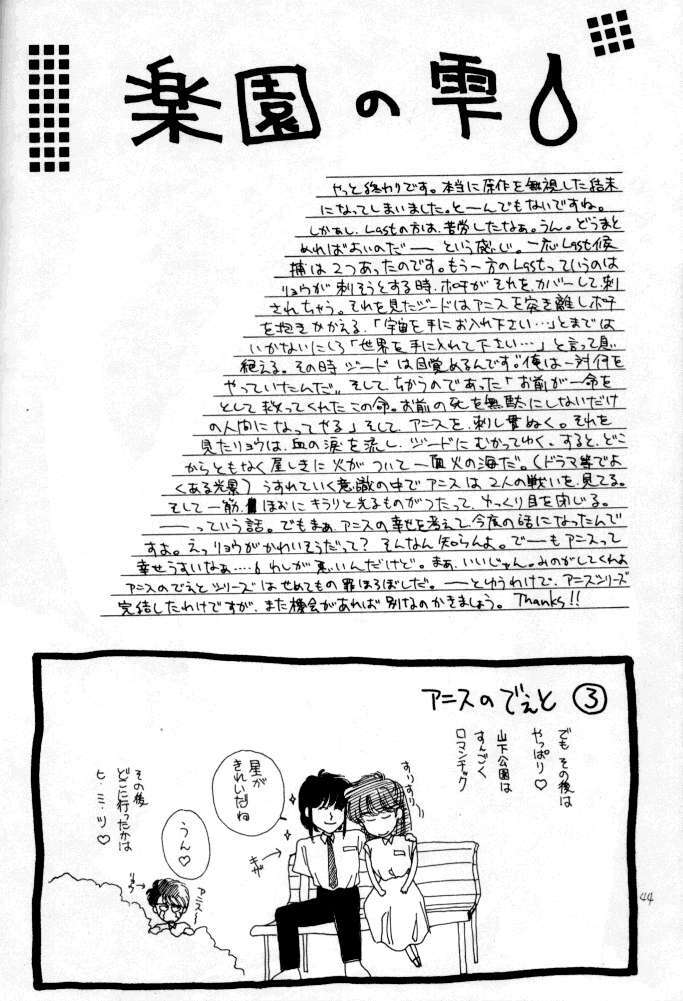 楽園の雫
やっと終わりです。本当に原作を無視した結末
になってしまいました。と—んでもないですね。
しかあし、Lastの方は、苦労したなぁ。うん。どうまと
めればよいのだ—— という感じ。一応Last候
捕は2つあったのです。もう一方のLastっていうのは
リョウが刺そうとする時、ポチがそれを、カバーして、刺
されちゃう。それを見たジードはアニスを突き離しポチ
を抱きかかえる。「宇宙を手にお入れ下さい…」とまでは
いかないにしろ「世界を手に入れて下さい…」と言って息
絶える。その時 ジードは目覚めるんです。“俺は一対何を
やっていたんだ〟 そして、ちかうのであった「お前が一命を
として救ってくれたこの命。お前の死を無駄にしないだけ
の人間になってやる」そして、アニスを、刺し貫ぬく。それを
見たリョウは、血の涙を流し、ジードにむかってゆく。すると、どこ
からともなく屋しきに火がついて一面火の海だ。(ドラマ等でよ
くある光景) うすれていく意識の中でアニスは2人の戦いを見てる。
そして一筋、ほおにキラリと光るものがつたって、ゆっくり目を閉じる。
——っていう話。でもまぁ、アニスの幸せを考えて今度の話になったんで
すよ。えっリョウがかわいそうだって？そんなん知らんよ。で—もアニスって
幸せうすいなぁ……わしが悪いんだけど。まぁ、いいじゃん。みのがしてくれよ
アニスのでぇとシリーズはせめてもの罪ほろぼしだ。——とゆうわけで、アニスシリーズ
完結したわけですが、また機会があれば別なのかきましょう。Thanks!!
アニスのでぇと ③
でも その後は
やっぱり♡
山下公園は
すんごく
ロマンチック
すりすり
星が
きれいだね
キザ
うん♡
アニス〜
リョウ
その後
どこに行ったかは
ヒ・ミ・ツ♡
44